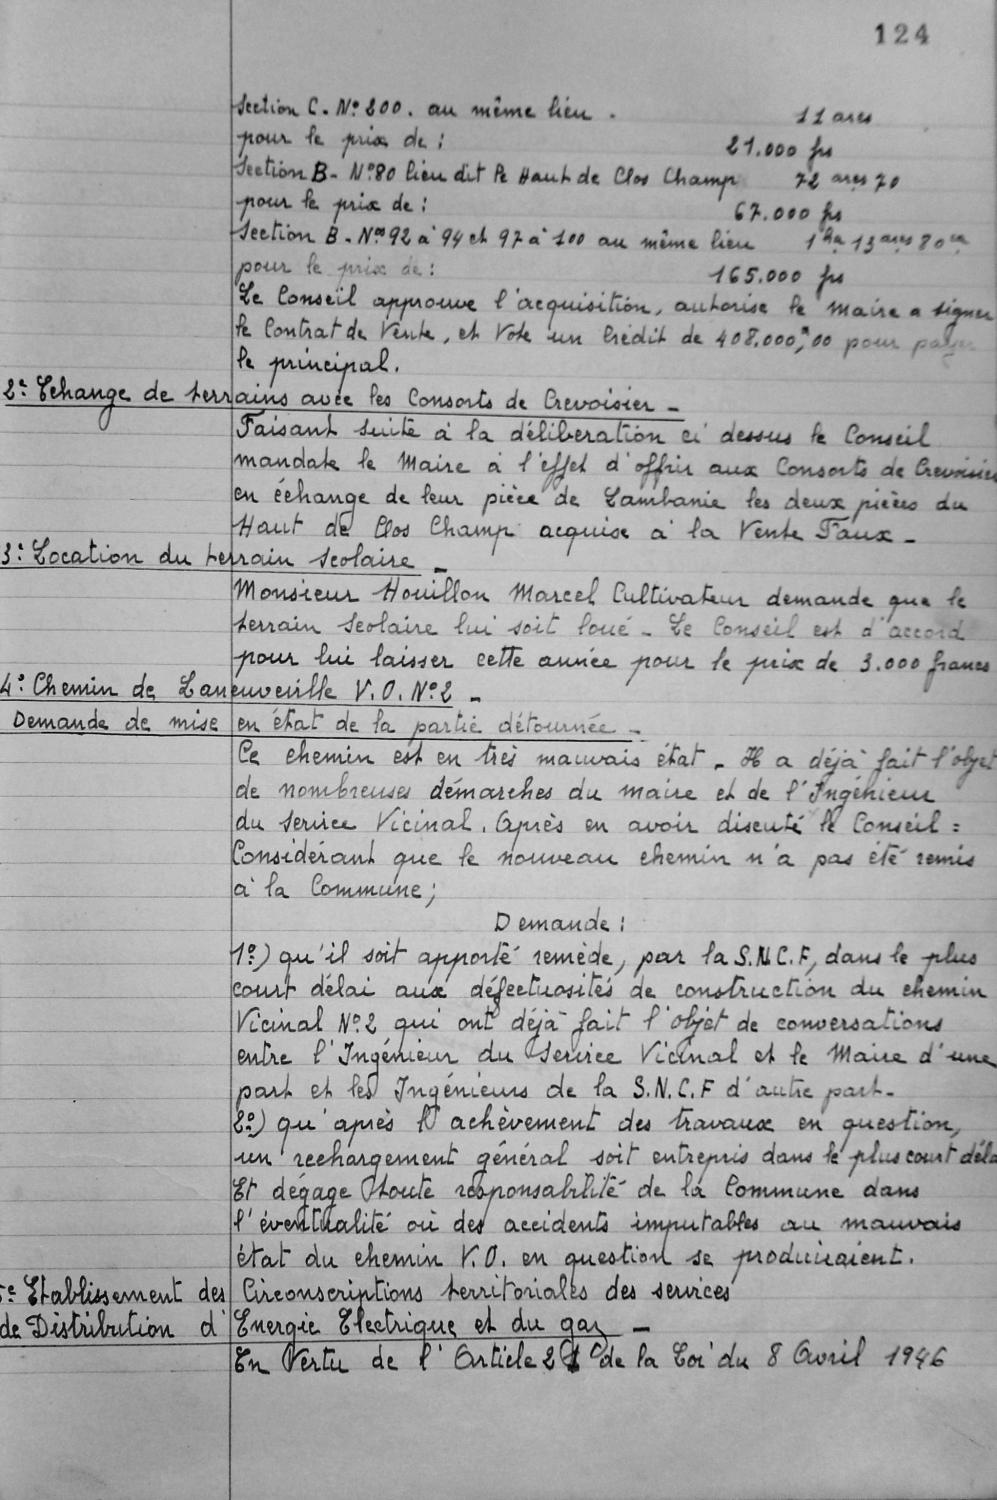 124
Section C. N° 200. au même lieu. 11 ares
pour le prix de : 21.000 frs
Section B- N°80 lieu dit le Haut de Clos Champ 72 ares 70
pour le prix de : 67.000 frs
Section B. Nos 92 à 94 et 97 à 100 au même lieu 1 ha 13 ares 80 ca
pour le prix de : 165.000 frs
Le Conseil approuve l'acquisition, autorise le Maire a signer
le Contrat de Vente, et Vote un Crédit de 408.000,00 pour payer
le principal.
2° Echange de terrains avec les Consorts de Crevoisier -
Faisant suite à la délibération ci dessus le Conseil
mandate le Maire à l'effet d'offrir aux Consorts de Crevoisier
en échange de leur pièce de Lambanie les deux pièces du
Haut de Clos Champ acquise à la Vente Faux -
3° Location du terrain Scolaire -
Monsieur Houillon Marcel Cultivateur demande que le
terrain Scolaire lui soit loué - Le Conseil est d'accord
pour lui laisser cette année pour le prix de 3.000 francs
4° Chemin de Laneuveville V.O. N°2 -
Demande de mise en état de la partie détournée -
Ce chemin est en très mauvais état - Il a déjà fait l'objet
de nombreuses démarches du maire et de l'Ingénieur
du Service Vicinal. Après en avoir discuté le Conseil :
Considérant que le nouveau chemin n'a pas été remis
à la Commune ;
Demande :
1°) qu'il soit apporté remède, par la S.N.C.F, dans le plus
court délai aux défectuosités de construction du chemin
Vicinal N°2 qui ont déjà fait l'objet de conversations
entre l'Ingénieur du Service Vicinal et le Maire d'une
part et les Ingénieurs de la S.N.C.F d'autre part -
2°) qu'après l'achèvement des travaux en question,
un rechargement général soit entrepris dans le plus court déla
Et dégage toute responsabilité de la Commune dans
l'éventualité où des accidents imputables au mauvais
état du chemin V.O. en question se produiraient.
5° Etablissement des Circonscriptions territoriales des services
de Distribution d'Energie Electrique et du gaz -
En Vertu de l'Article 21 de la Loi du 8 Avril 1946